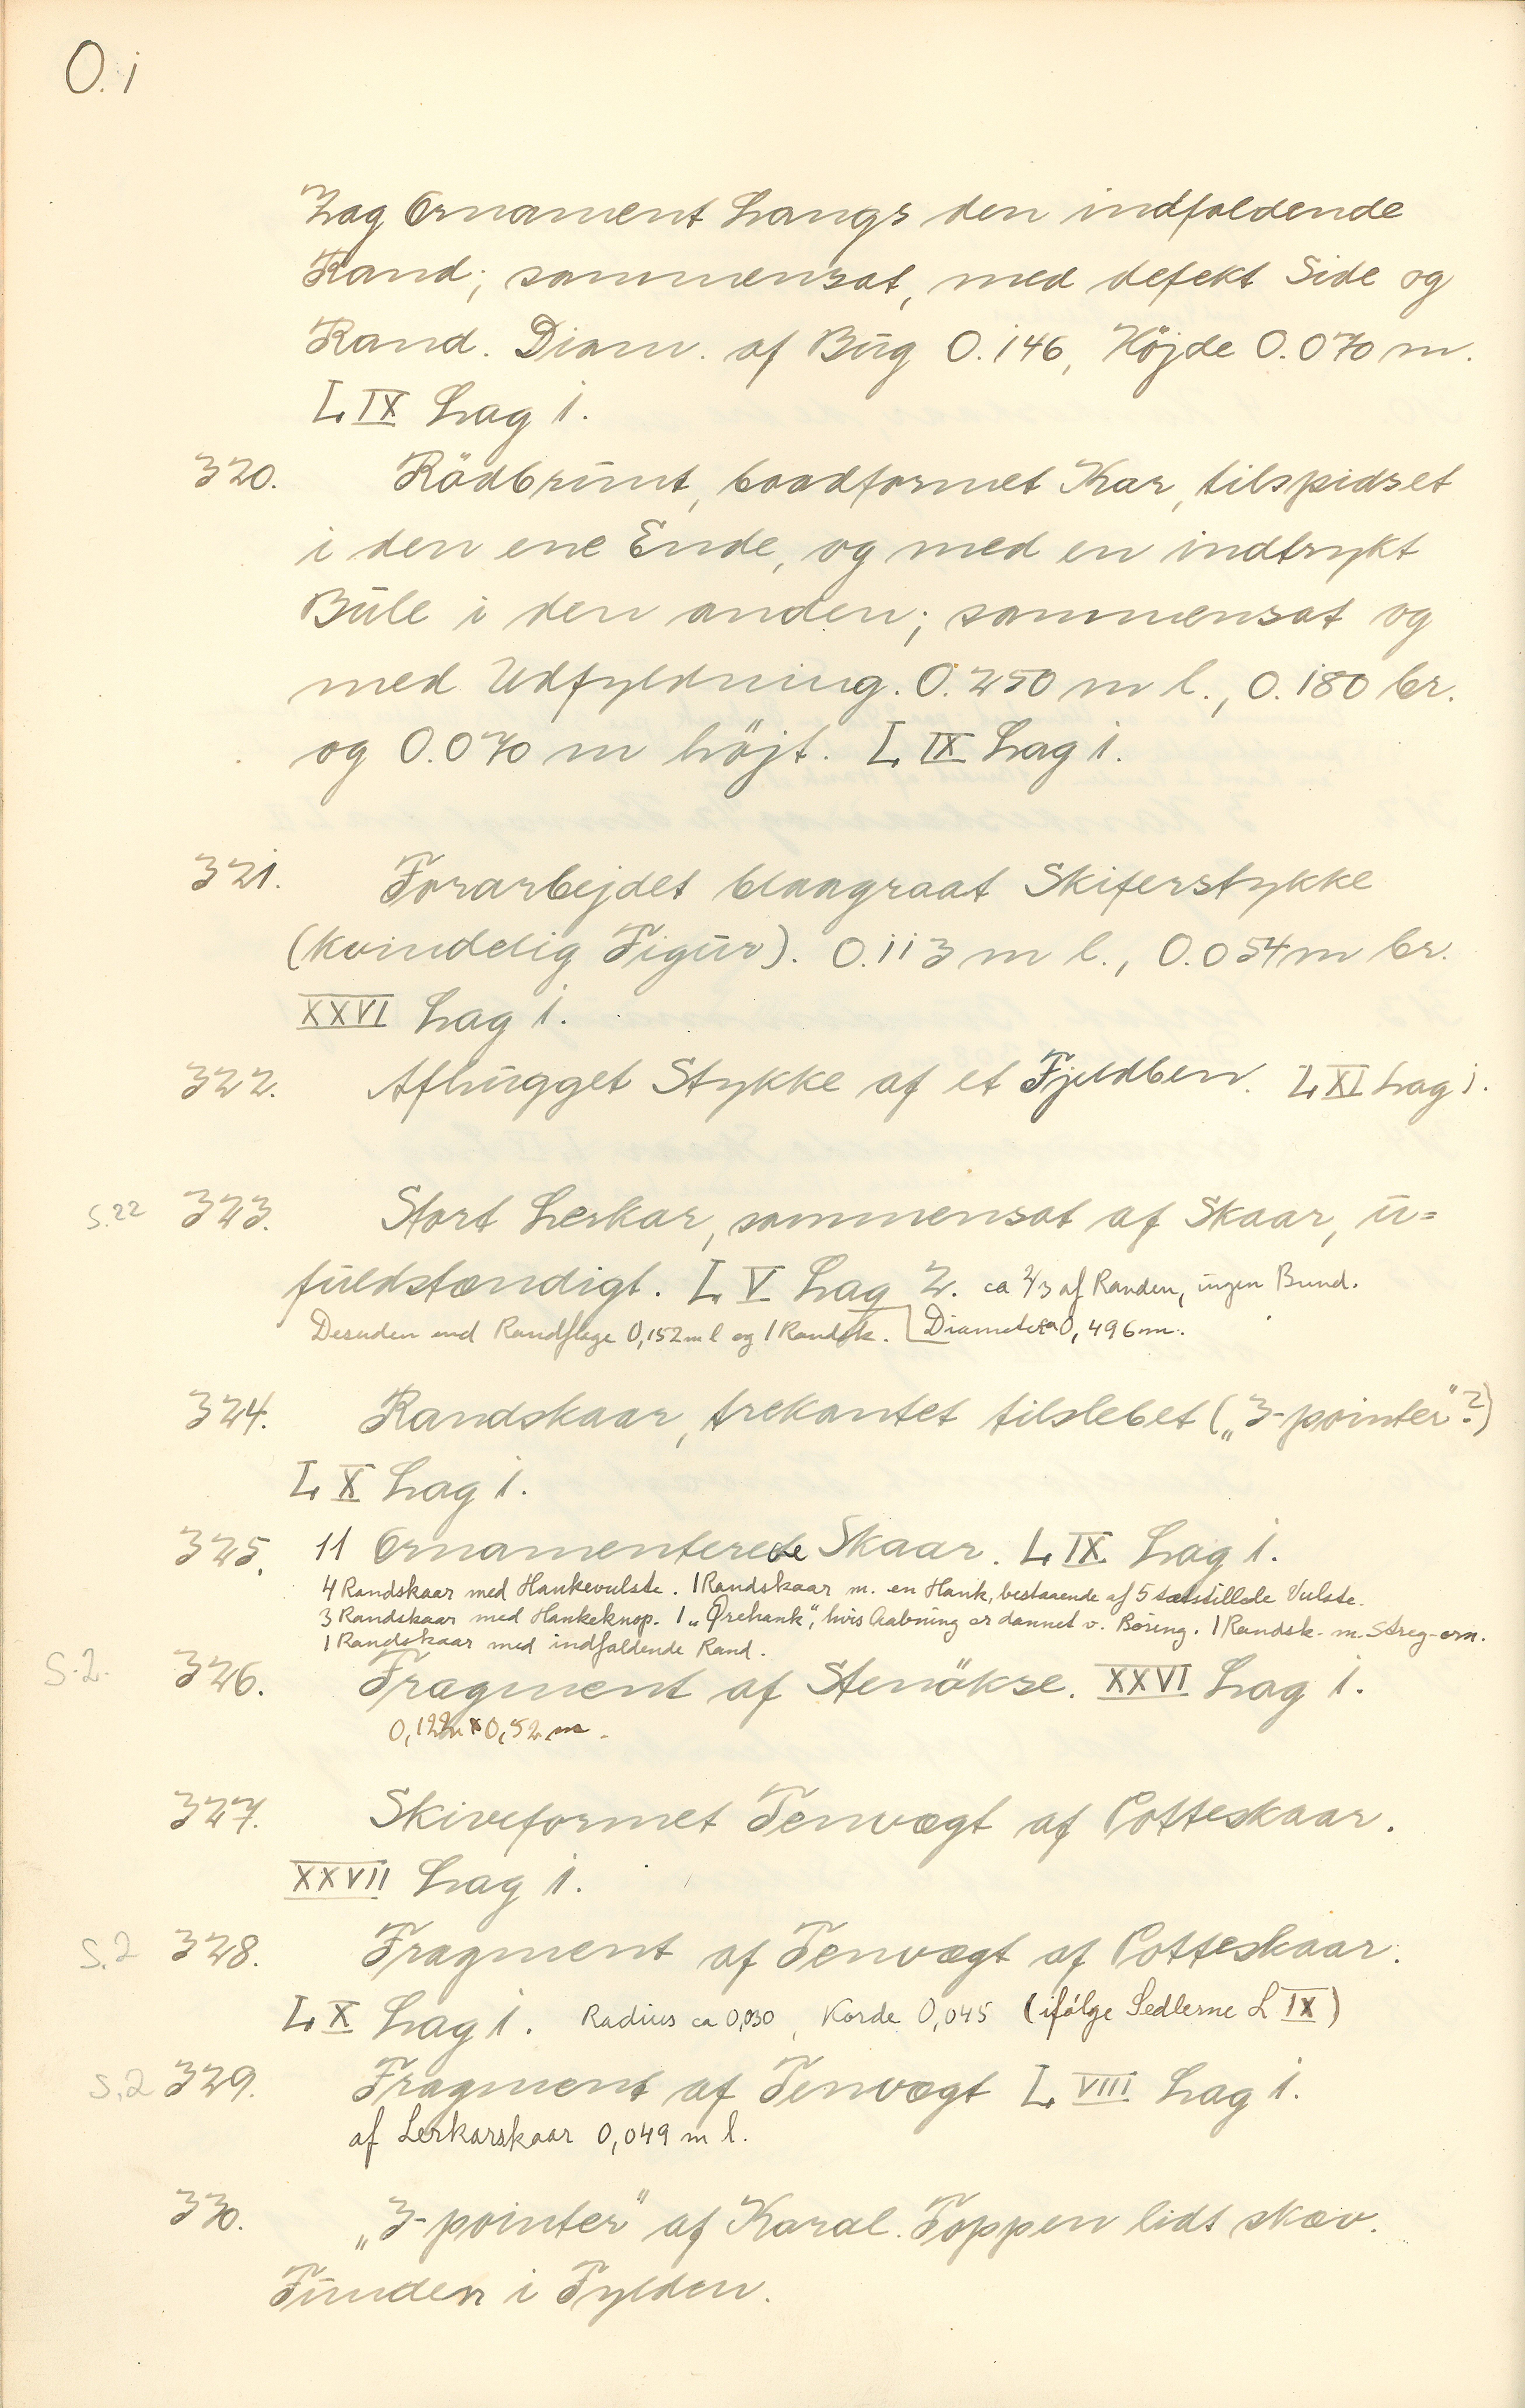 O.i
Zag Ornament langs den indfaldende
Rand; sammensat, med defekt Side og
Rand. Diam. af Bug 0.146, Höjde 0.070 m.
L IX Lag 1.
320. Rödbrunt, baadformet Kar, tilspidset
i den ene Ende, og med en indtrykt
Bule i den anden; sammensat og
med Udfyldning. 0.250 m l., 0.180 br.
og 0.070 m höjt. L IX Lag 1.
321. Forarbejdet blaagraat Skiferstykke
(kvindelig Figur). 0.113 m l., 0.054 m br.
XXVI Lag 1.
322. Afhugget Stykke af et Fjeldben. L XI Lag 1.
S.22 323. Stort Lerkar, sammensat af Skaar, u=
fuldstændigt. L V Lag 2. ca 2/3 af Randen, ingen Bund.
Desuden end Randflage 0,152 m l og 1 Randsk. Diameter ca 0,496 m.
324. Randskaar, trekantet tilslebet („3-pointer"?)
L X Lag 1.
325. 11 Ornamenterede Skaar. L IX Lag 1.
4 Randskaar med Hankevulste. 1 Randskaar m. en Hank, bestaaende af 5 tætstillede Vulste.
3 Randskaar med Hankeknop. 1 „Ørehank", hvis Aabning er dannet v. Boring. 1 Randsk. m. Streg-orn.
1 Randskaar med indfaldende Rand.
S.2. 326. Fragment af Stenökse. XXVI Lag 1.
0,122m x 0,52 m.
327. Skiveformet Tenvægt af Potteskaar.
XXVII Lag 1.
S.2 328. Fragment af Tenvægt af Potteskaar.
L X Lag 1. Radius ca 0,030, Korde 0,045 (ifölge Sedlerne L IX)
S.2 329. Fragment af Tenvægt L VIII Lag 1.
af Lerkarskaar 0,049 m l.
330. „3-pointer" af Karal. Toppen lidt skæv.
Funden i Fylden.